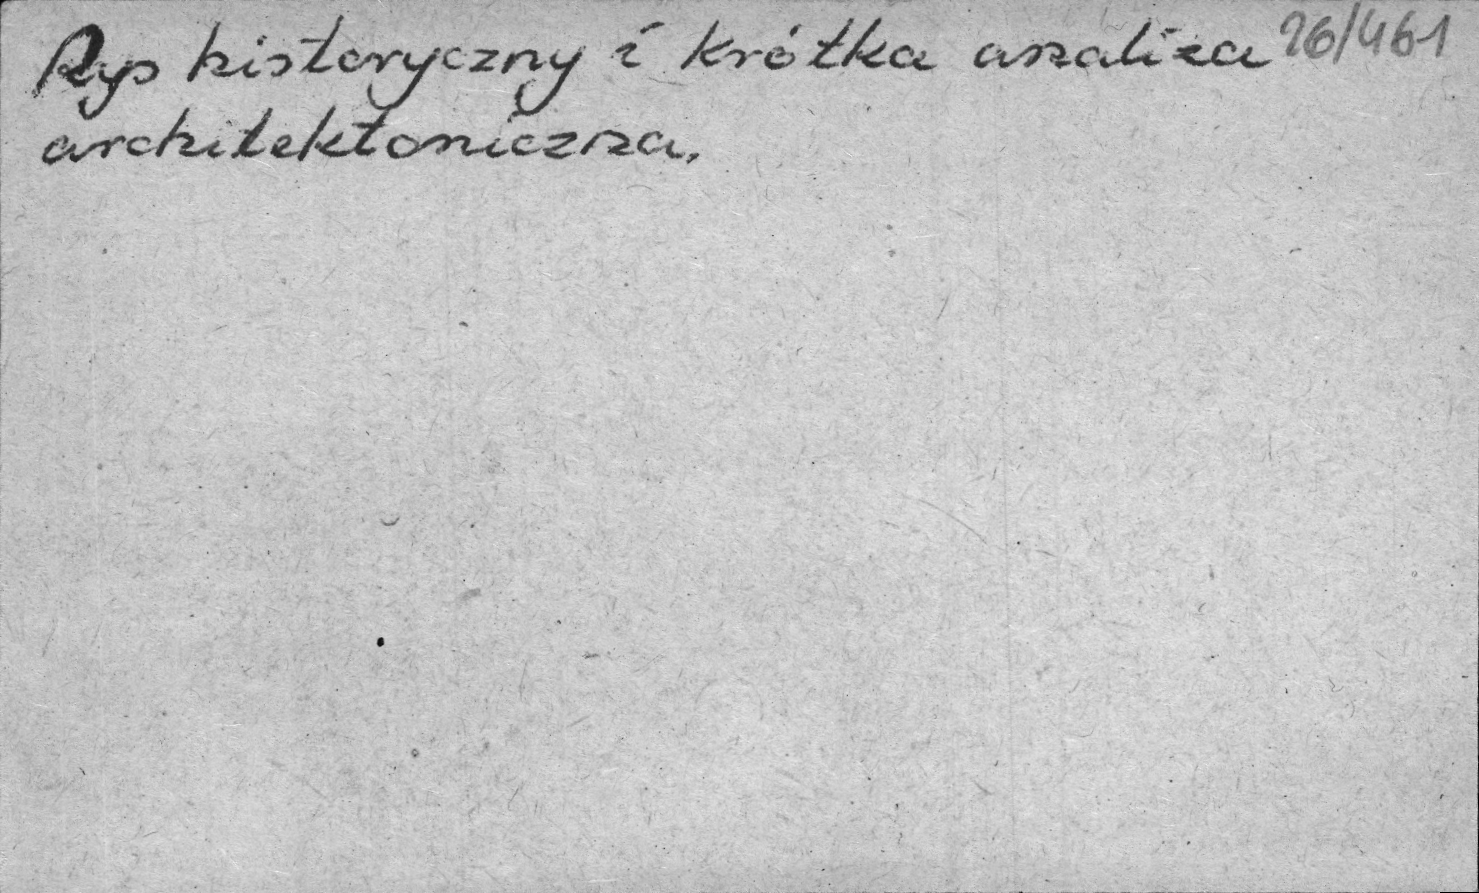 Rys historyczny i krótka analiza 26/461
architektoniczna.